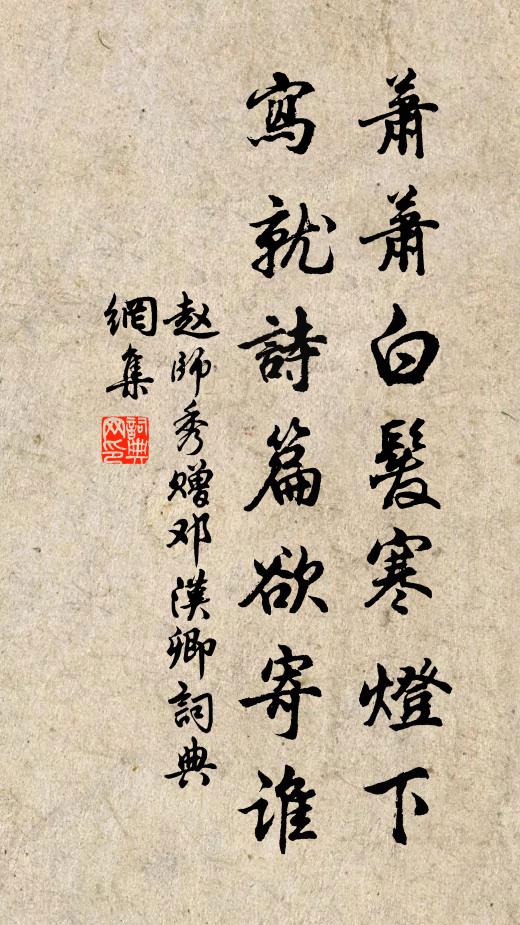 蕭蕭白髮寒燈下
寫就詩篇欲寄誰
赵師秀赠邓漢卿詞典
網集
詞典
网印